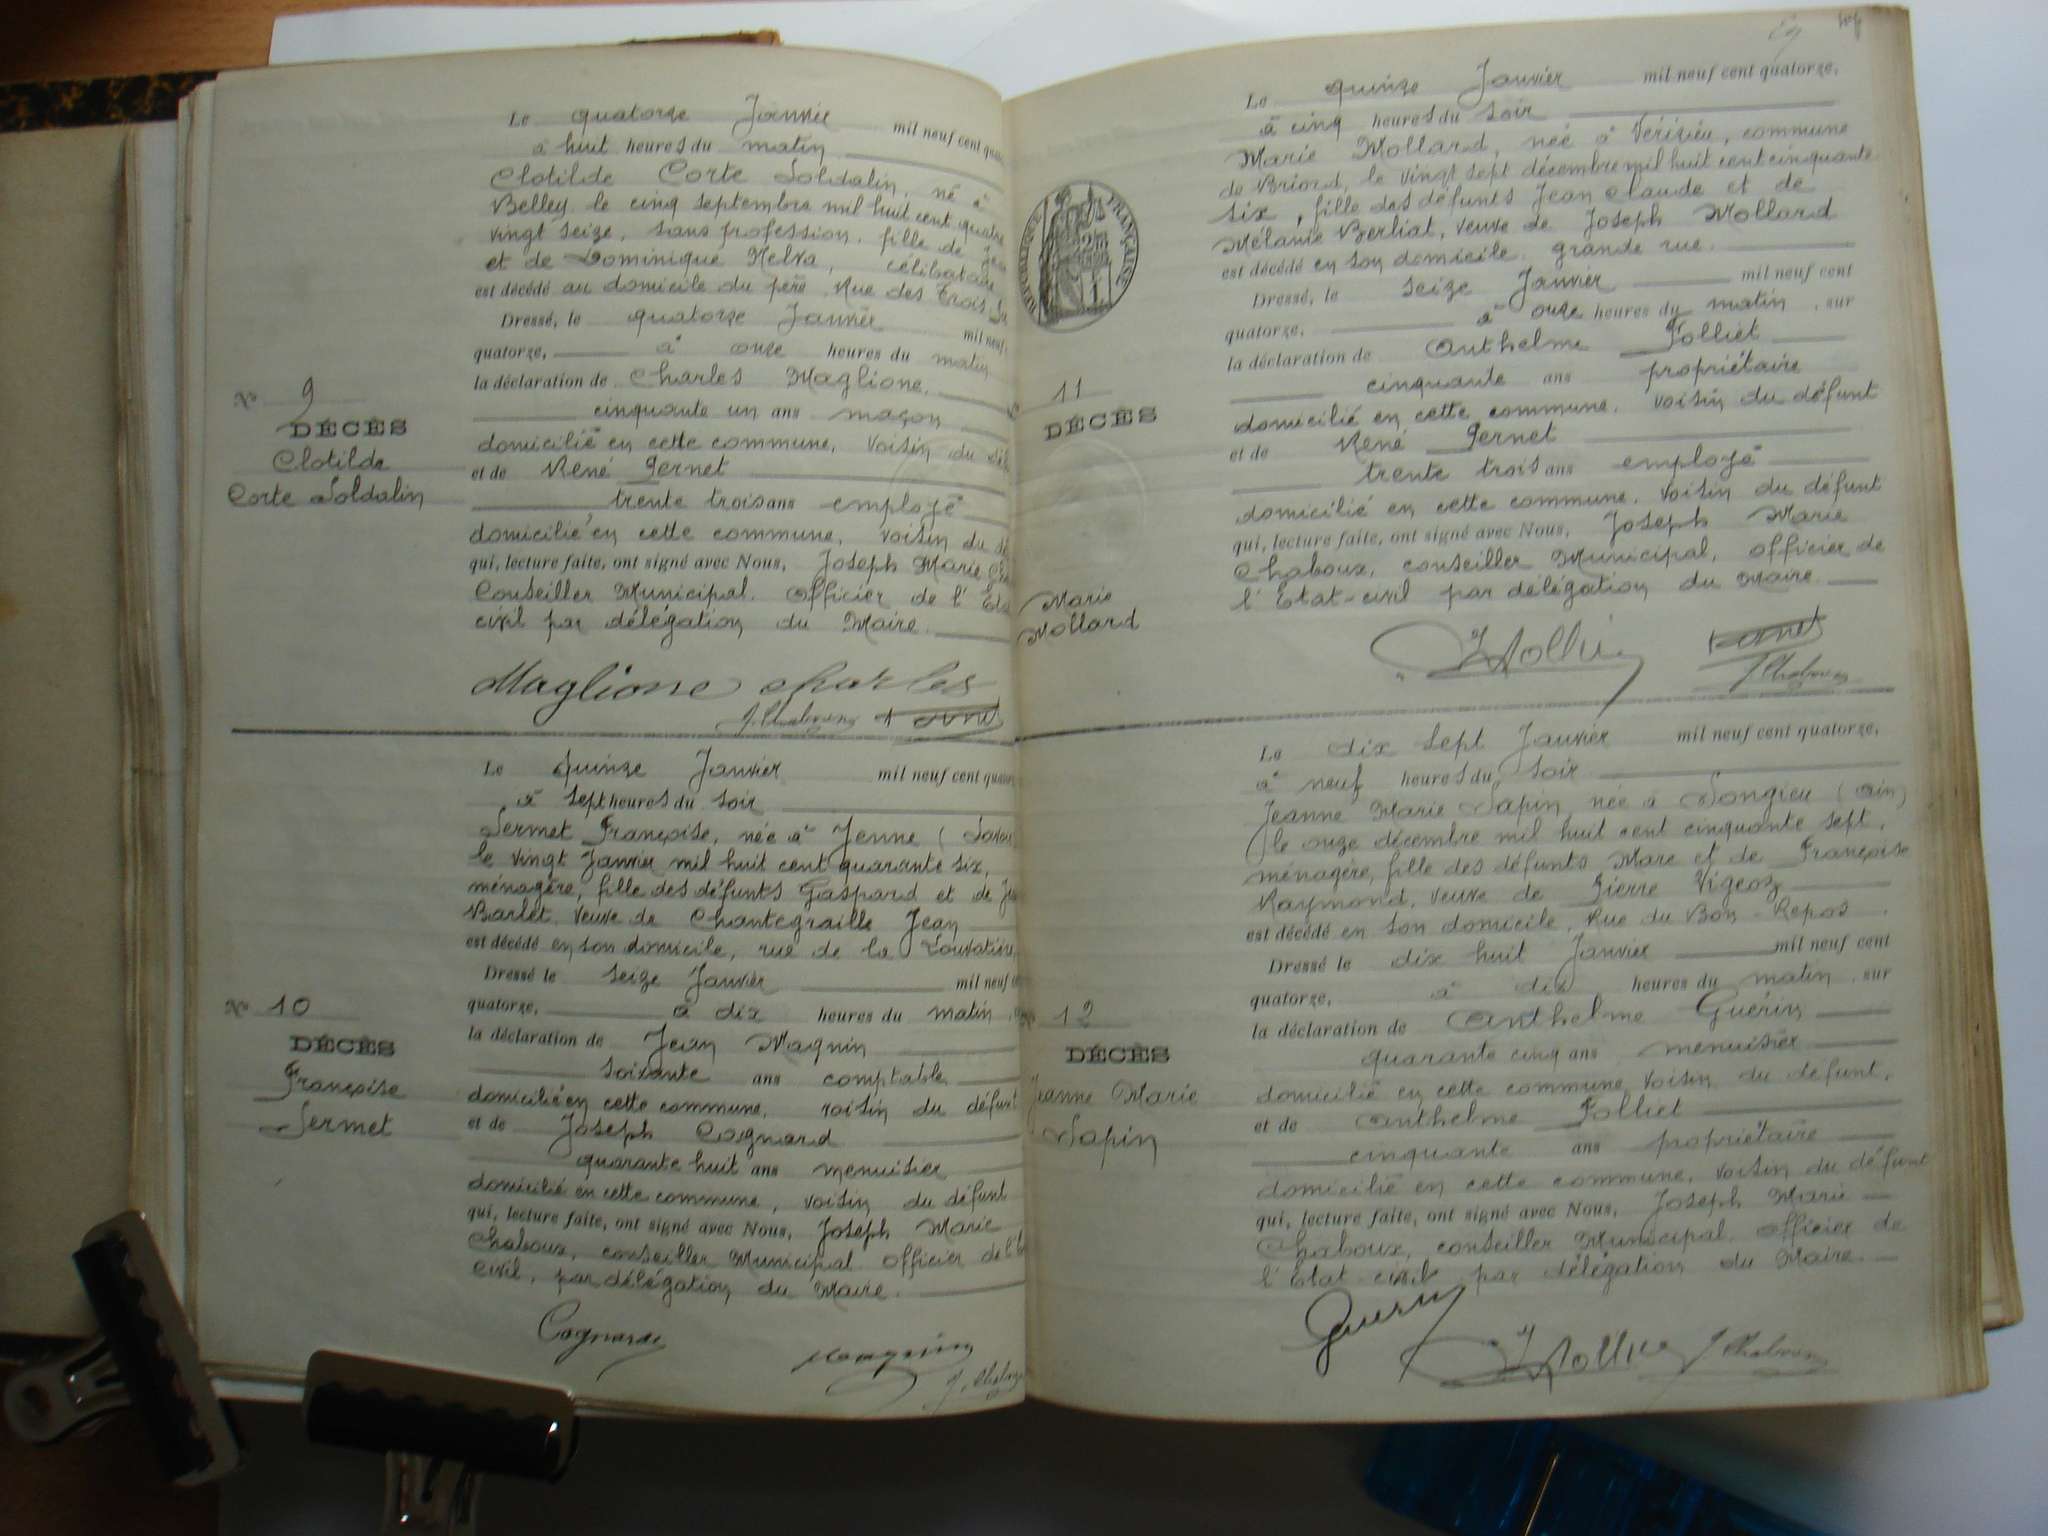 Le quatorze Janvier mil neuf cent
à huit heures du matin
Clotilde Corte Soldalin, né à
Belley le cinq septembre mil huit cent quatre
vingt seize, sans profession, fille de
et de Dominique Melva, célibataire
est décédé au domicile du père, Rue des Trois
Dressé, le quatorze Janvier mil neuf
quatorze, à onze heures du matin
la déclaration de Charles Maglione,
cinquante un ans maçon
domicilié en cette commune, voisin du
et de René Pernet
trente trois ans employé
domicilié en cette commune, voisin du
qui, lecture faite, ont signé avec Nous, Joseph Marie
Conseiller Municipal, Officier de l'
civil par délégation du Maire.
N° 9
DÉCÈS
Clotilde
Corte Soldalin
Maglione Charles
J. Chaboux Pernet
Le quinze Janvier mil neuf cent
à sept heures du soir
Sermet Françoise, née à Yenne
le vingt Janvier mil huit cent quarante six,
ménagère, fille des défunts Gaspard et de
Barlet, veuve de Chantegraille Jean
est décédé en son domicile, rue de la Louvatière,
Dressé le seize Janvier mil neuf
quatorze, à dix heures du matin,
la déclaration de Jean Magnin
soixante ans comptable
domicilié en cette commune, voisin du défunt
et de Joseph Cognard
quarante huit ans menuisier
domicilié en cette commune, voisin du défunt
qui, lecture faite, ont signé avec Nous, Joseph Marie
Chaboux, conseiller Municipal Officier de
civil, par délégation du Maire.
N° 10
DÉCÈS
Françoise
Sermet
Cognard Magnin
J. Chaboux
Le quinze Janvier mil neuf cent quatorze,
à cinq heures du soir
Marie Mollard, née à Vérizieu, commune
de Briord, le vingt sept décembre mil huit cent cinquante
six, fille des défunts Jean Claude et de
Mélanie Berliat, veuve de Joseph Mollard
est décédé en son domicile, grande rue.
Dressé, le seize Janvier mil neuf cent
quatorze, à onze heures du matin, sur
la déclaration de Anthelme Folliet
cinquante ans propriétaire
domicilié en cette commune, voisin du défunt
et de René Pernet
trente trois ans employé
domicilié en cette commune, voisin du défunt
qui, lecture faite, ont signé avec Nous, Joseph Marie
Chaboux, conseiller Municipal, officier de
l'Etat-civil par délégation du Maire.
RÉPUBLIQUE FRANÇAISE
11
DÉCÈS
Marie
Mollard
Pernet
J. Chaboux
Le dix sept Janvier mil neuf cent quatorze,
à neuf heures du soir
Jeanne Marie Sapin, née à Songieu (Ain)
le onze décembre mil huit cent cinquante sept,
ménagère, fille des défunts Marc et de Françoise
Raymond, veuve de Pierre Vigeoz
est décédé en son domicile, Rue du Bon-Repos.
Dressé le dix huit Janvier mil neuf cent
quatorze, à dix heures du matin, sur
la déclaration de Anthelme Guérin
quarante cinq ans menuisier
domicilié en cette commune, voisin du défunt,
et de Anthelme Folliet
cinquante ans propriétaire
domicilié en cette commune, voisin du défunt
qui, lecture faite, ont signé avec Nous, Joseph Marie
Chaboux, conseiller Municipal, Officier de
l'Etat-civil par délégation du Maire.
12
DÉCÈS
Jeanne Marie
Sapin
Guérin
J. Chaboux